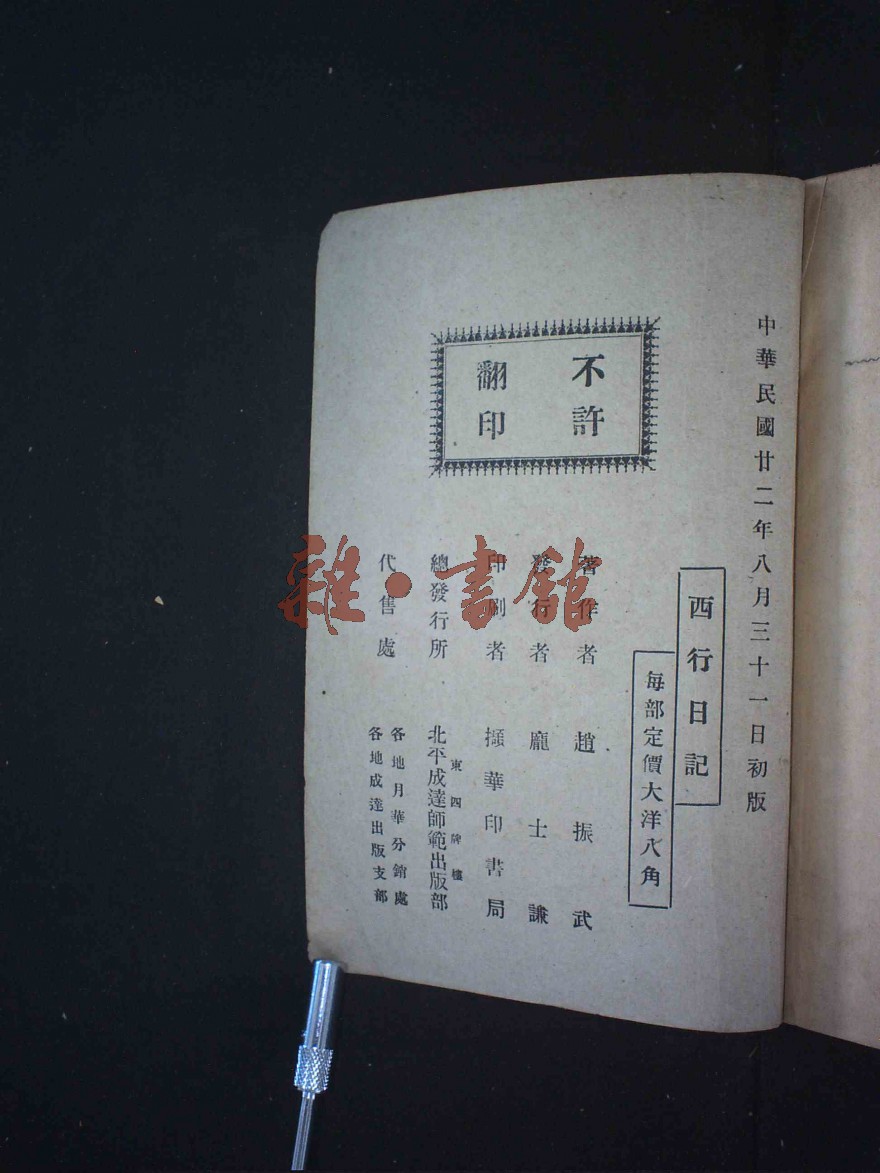 中華民國廿二年八月三十一日初版
西行日記
每部定價大洋八角
不許
翻印
著作者 趙振武
發行者 龐士謙
印刷者 擷華印書局
總發行所 東四牌樓 北平成達師範出版部
代售處 各地月華分銷處
各地成達出版支部
雜·書館